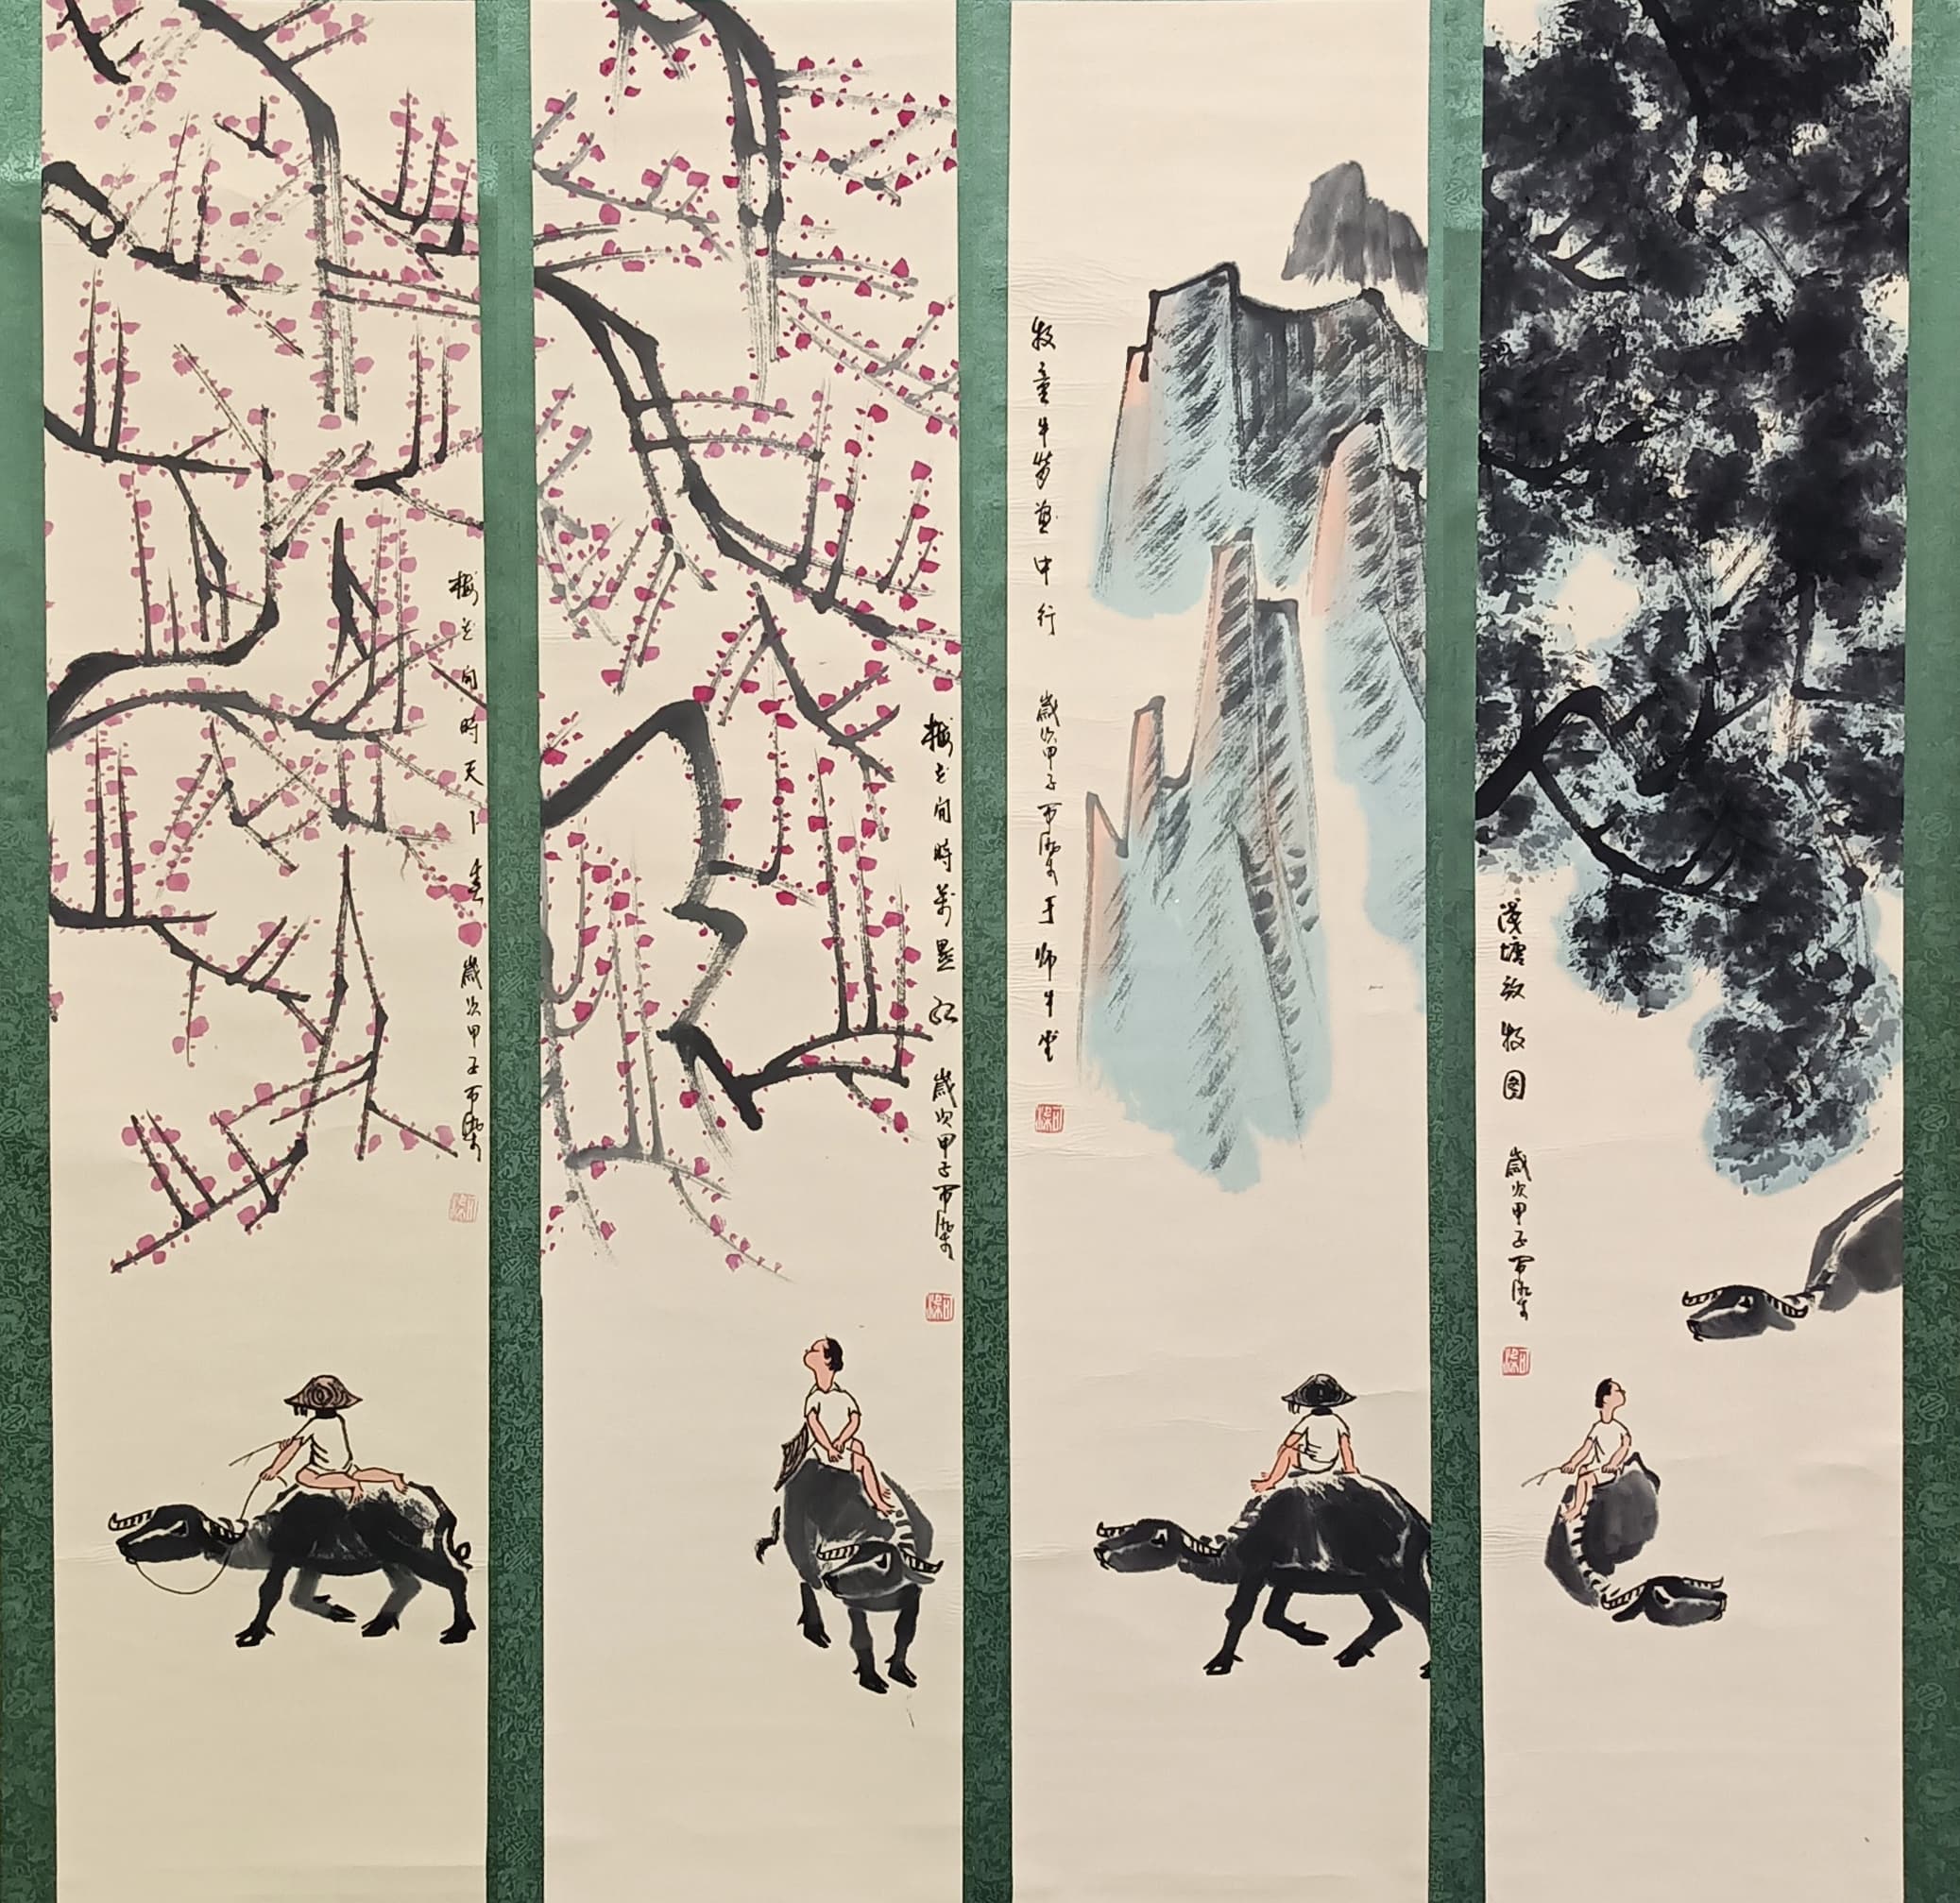 梅花開時天下春 歲次甲子可染
梅花開時萬點紅 歲次甲子可染
牧童牛背畫中行 歲次甲子可染于師牛堂
可染
淺塘放牧圖 歲次甲子可染